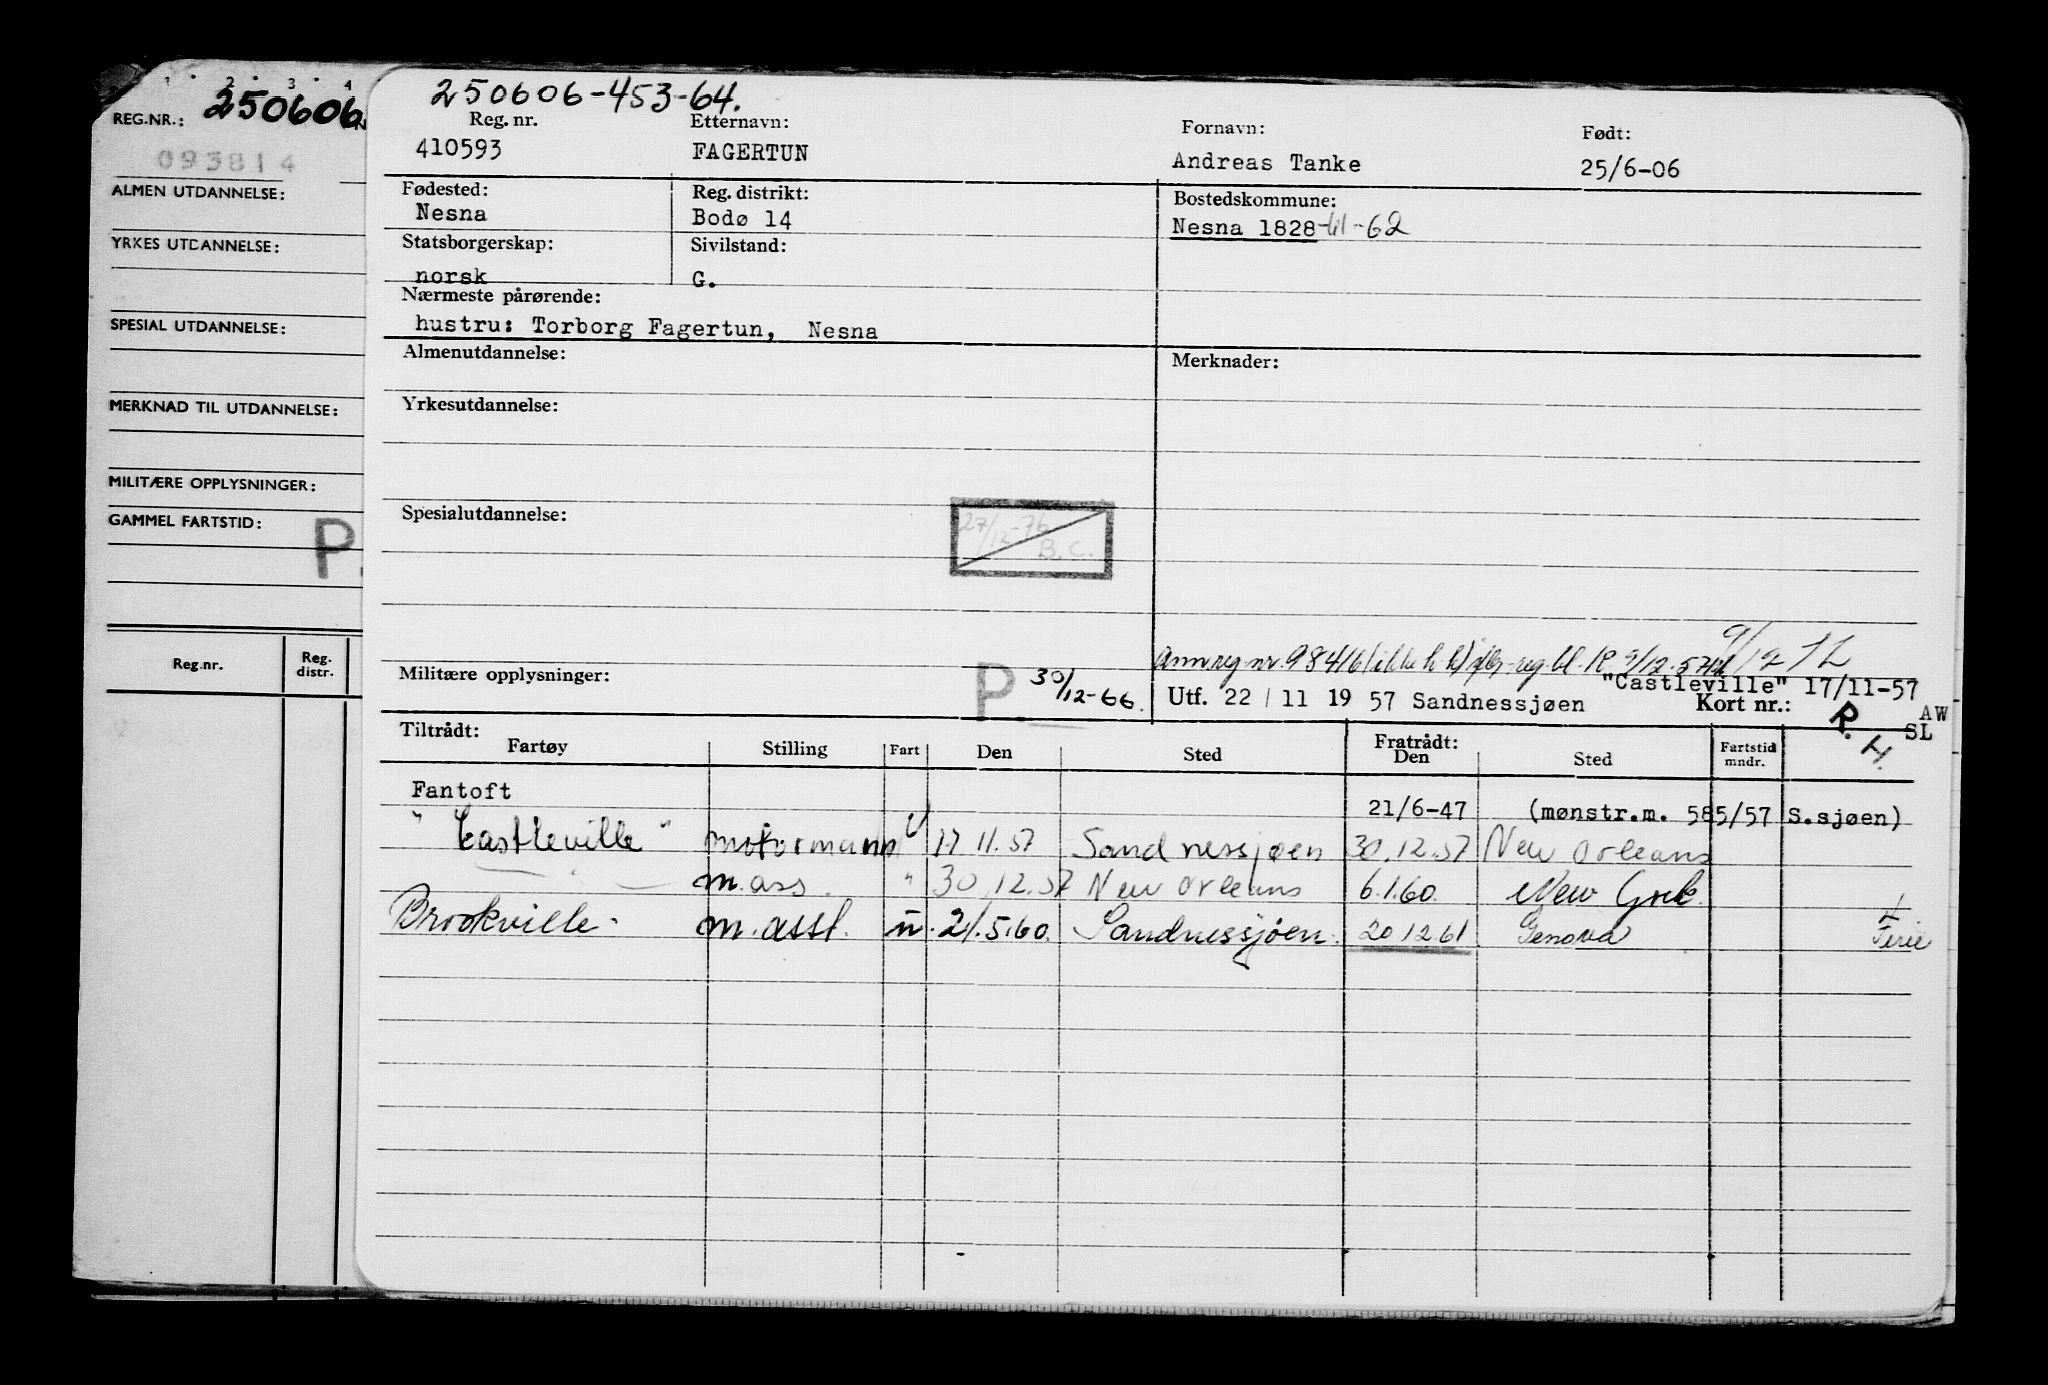 1 2 3 4
REG.NR.: 250606
093814
ALMEN UTDANNELSE:
YRKES UTDANNELSE:
SPESIAL UTDANNELSE:
MERKNAD TIL UTDANNELSE:
MILITÆRE OPPLYSNINGER:
GAMMEL FARTSTID:
P.
Reg.nr. Reg. distr.
250606-453-64.
Reg. nr. Etternavn: Fornavn: Født:
410593 FAGERTUN Andreas Tanke 25/6-06
Fødested: Reg. distrikt: Bostedskommune:
Nesna Bodø 14 Nesna 1828-61-62
Statsborgerskap: Sivilstand:
norsk G.
Nærmeste pårørende:
hustru: Torborg Fagertun, Nesna
Almenutdannelse: Merknader:
Yrkesutdannelse:
Spesialutdannelse:
27/12-76
B.C.
9/12
Ann reg nr. 98416 (ikke h k) reg. bl. R. 9/12-57
"Castleville" 17/11-57
Militære opplysninger: P 30/12-66. Utf. 22 / 11 19 57 Sandnessjøen Kort nr.:
R. H. AW
SL
Tiltrådt: Fratrådt:
Fartøy Stilling Fart Den Sted Den Sted Fartstid mndr.
Fantoft 21/6-47 (mønstr.m. 585/57 S.sjøen)
"Castleville" motormann U 17 11.57 Sandnessjøen 30.12.57 New Orleans
m.ass. " 30.12.57 New Orleans 6.1.60. New York.
Brookville- m.asst. u. 21.5.60. Sandnessjøen. 20 12 61 Genova Ferie